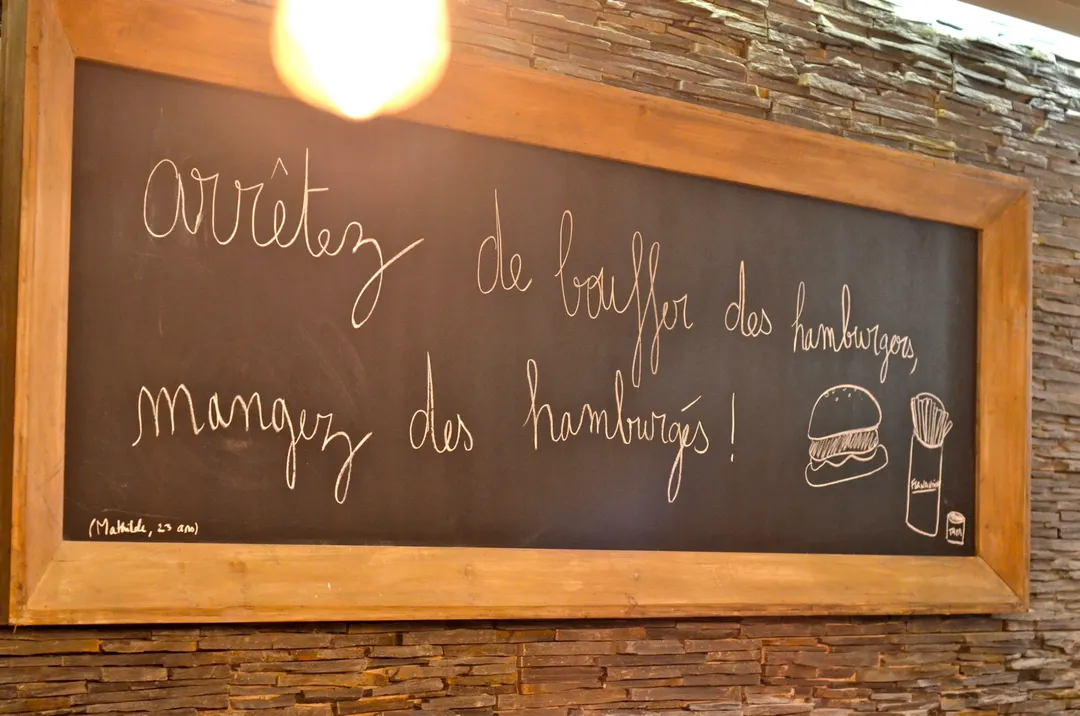 arrêtez de bouffer des hamburgers,
mangez des hamburgés !
(Mathilde, 23 ans)